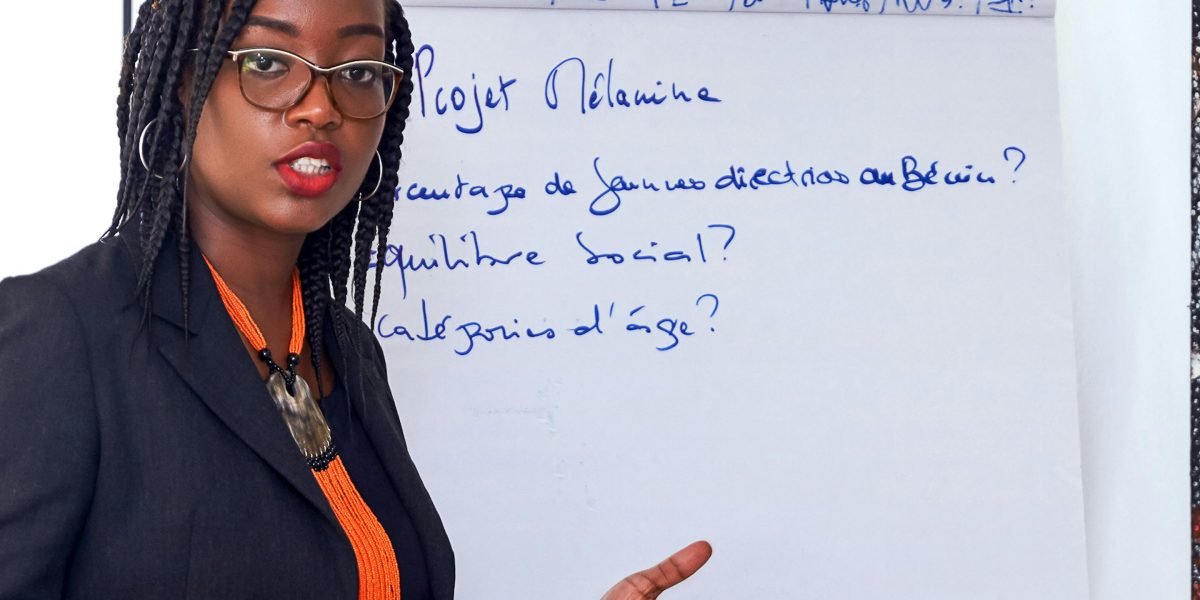 Projet Mélanine
rcentage de femmes directrices au Bénin?
equilibre Social?
catégories d'âge?